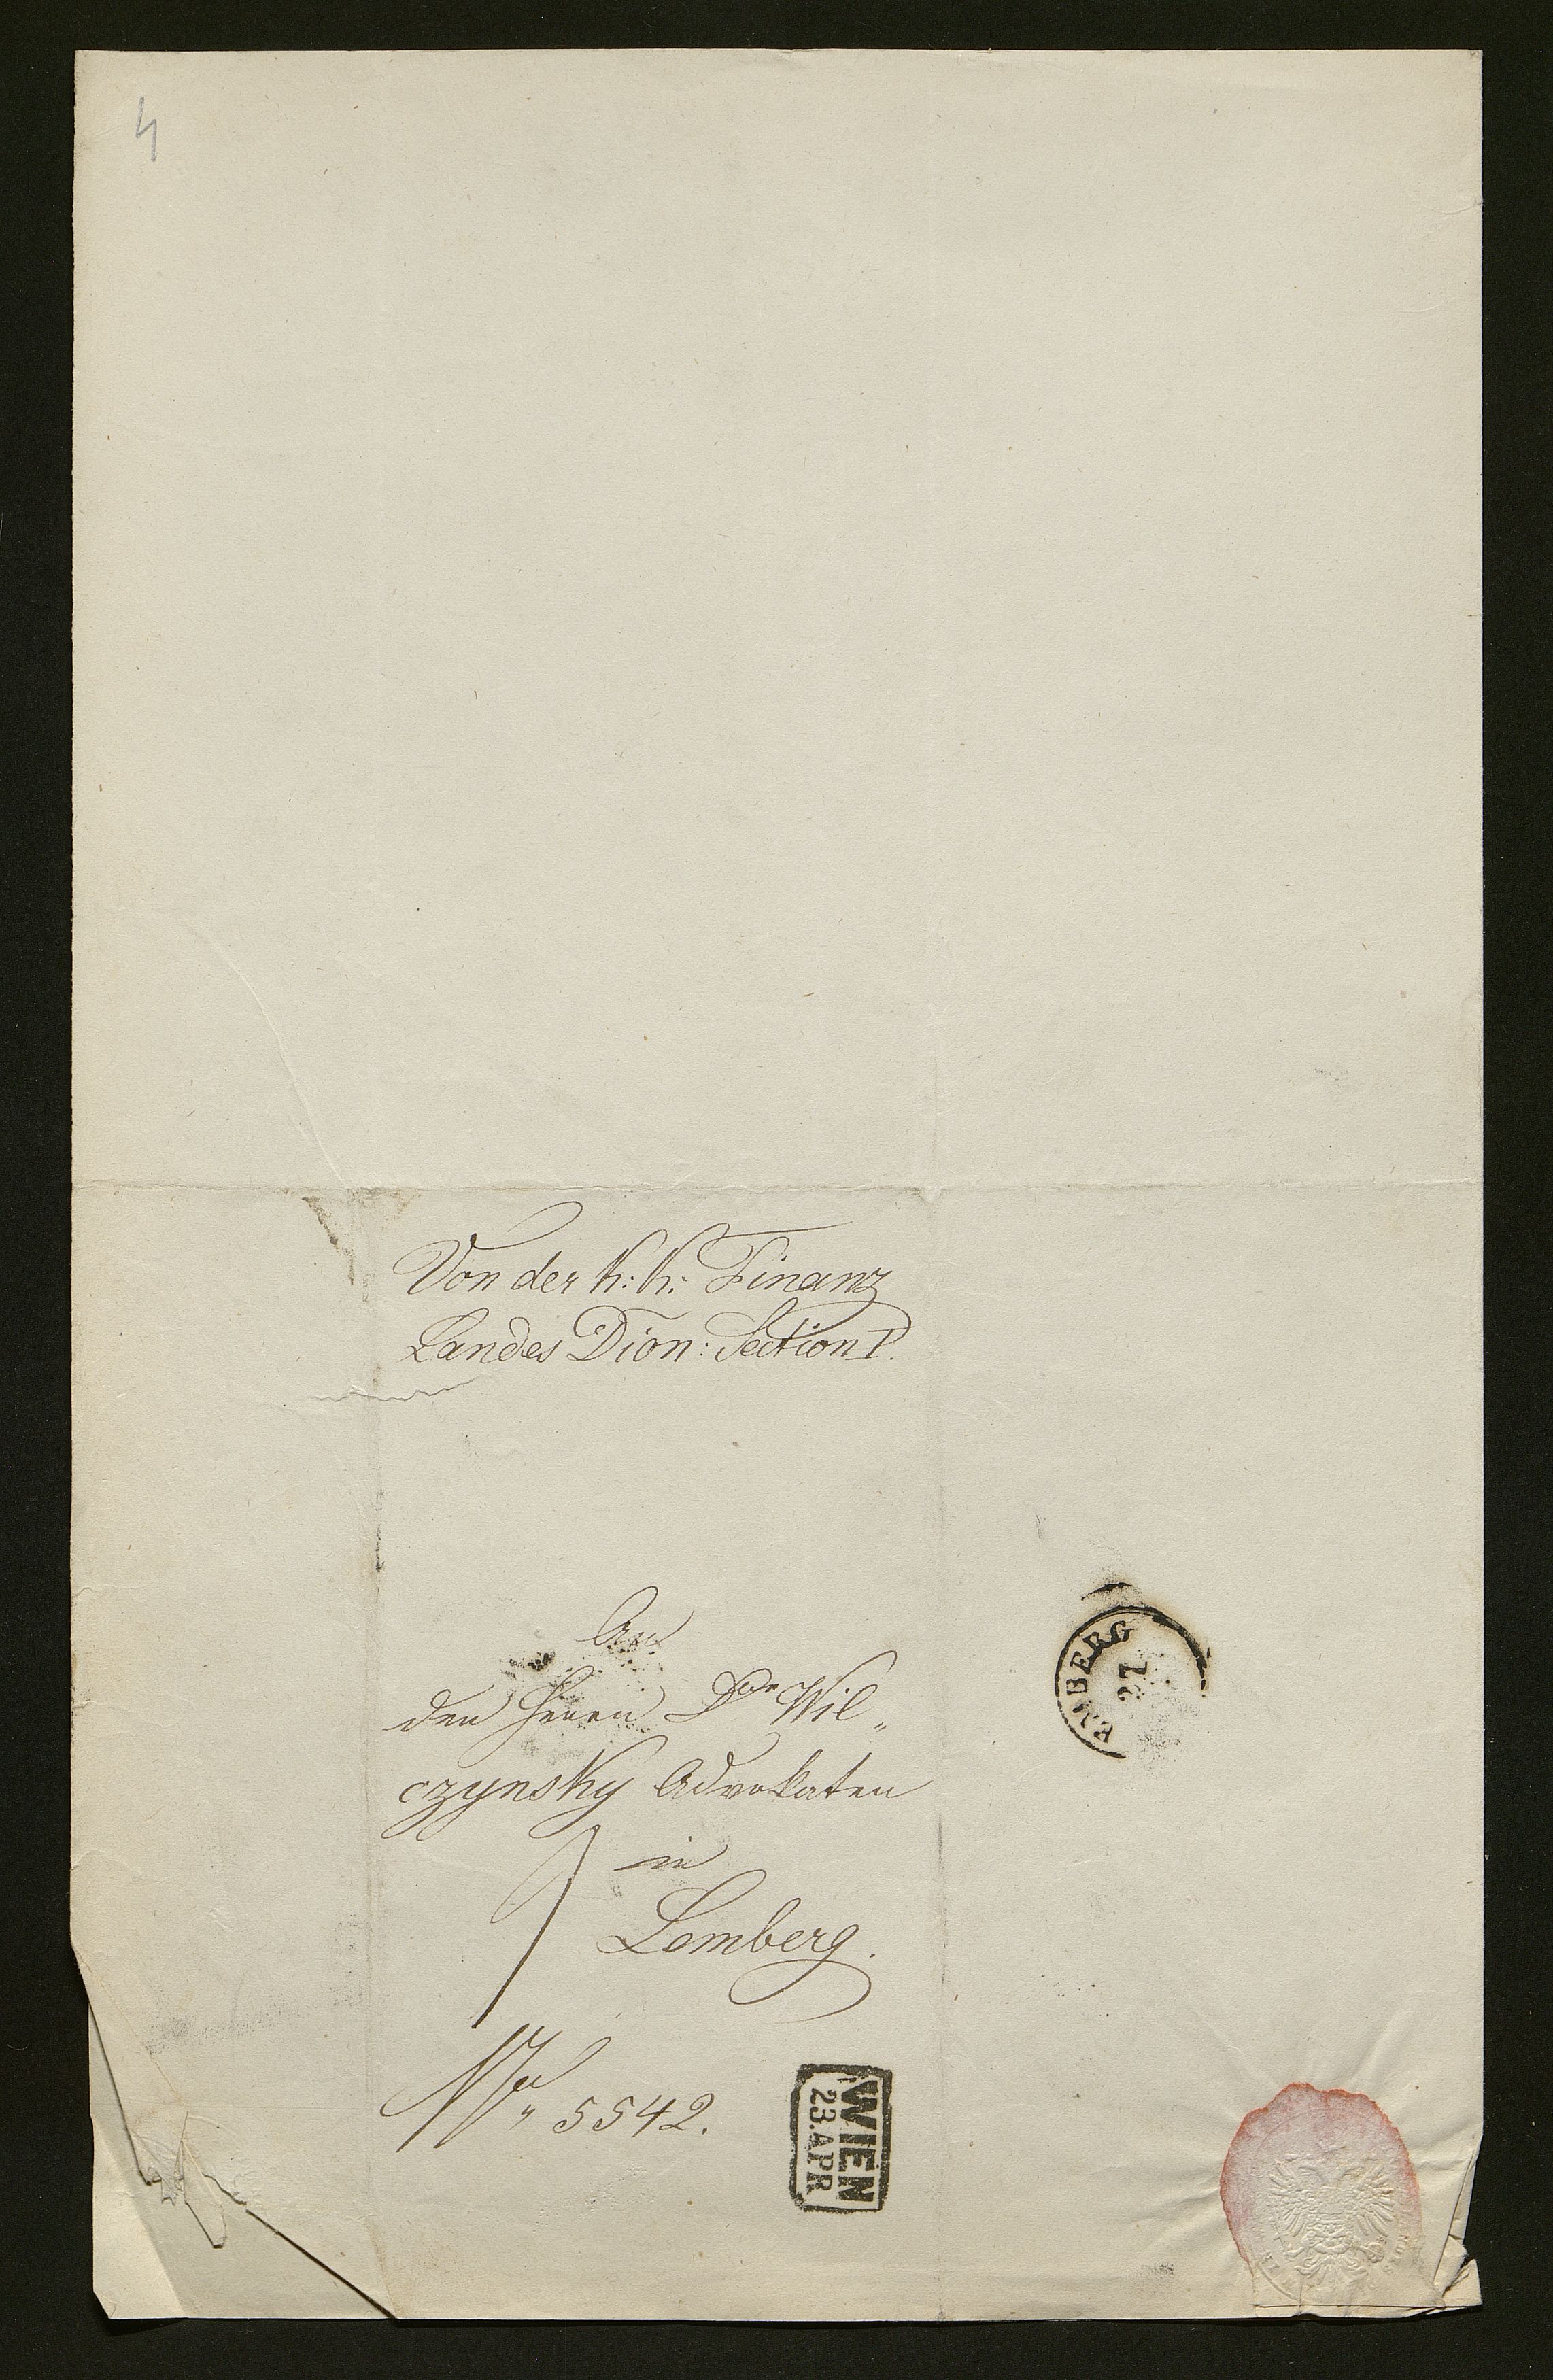 4
Von der k: k: Finanz
Landes Dion: Section I.
An
den Herrn Dr Wil„
czynsky Advokaten
in
Lemberg.
5542.
EMBERG
27
WIEN
23. APR